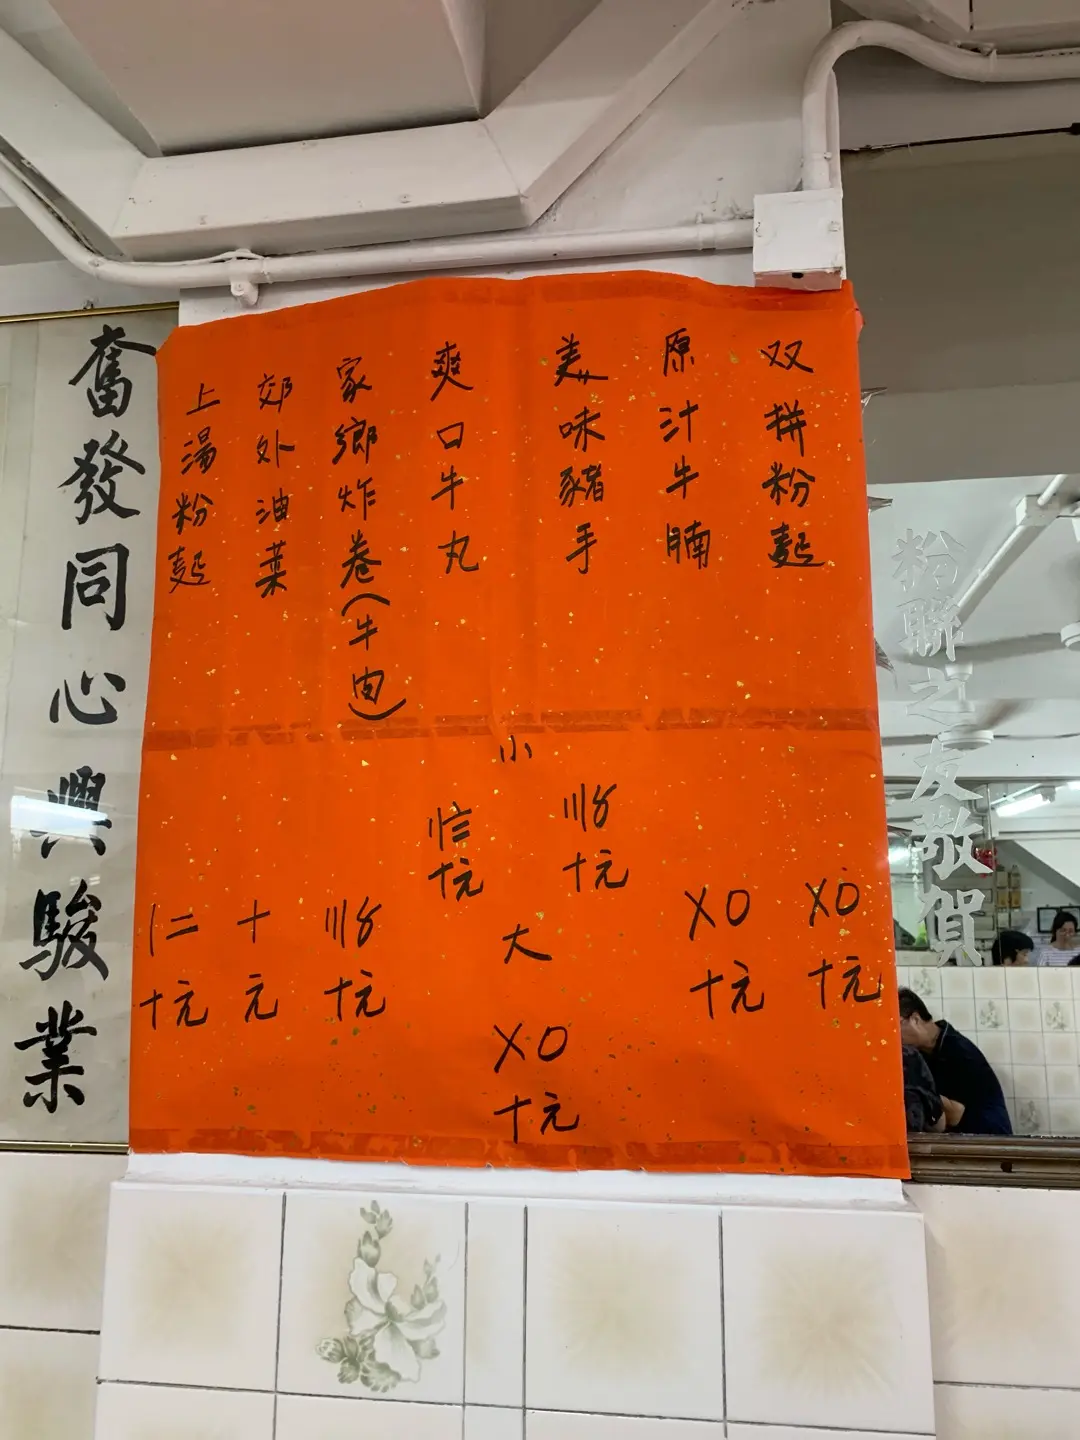 双拼粉麵
〤0
十元
原汁牛腩
〤0
十元
美味豬手
小
〣〥
十元
大
〤0
十元
爽口牛丸
〢〨
十元
家鄉炸卷(牛肉)
〣〥
十元
郊外油菜
十
元
上湯粉麵
〡二
十元
奮發同心興駿業
粉聯之友敬賀